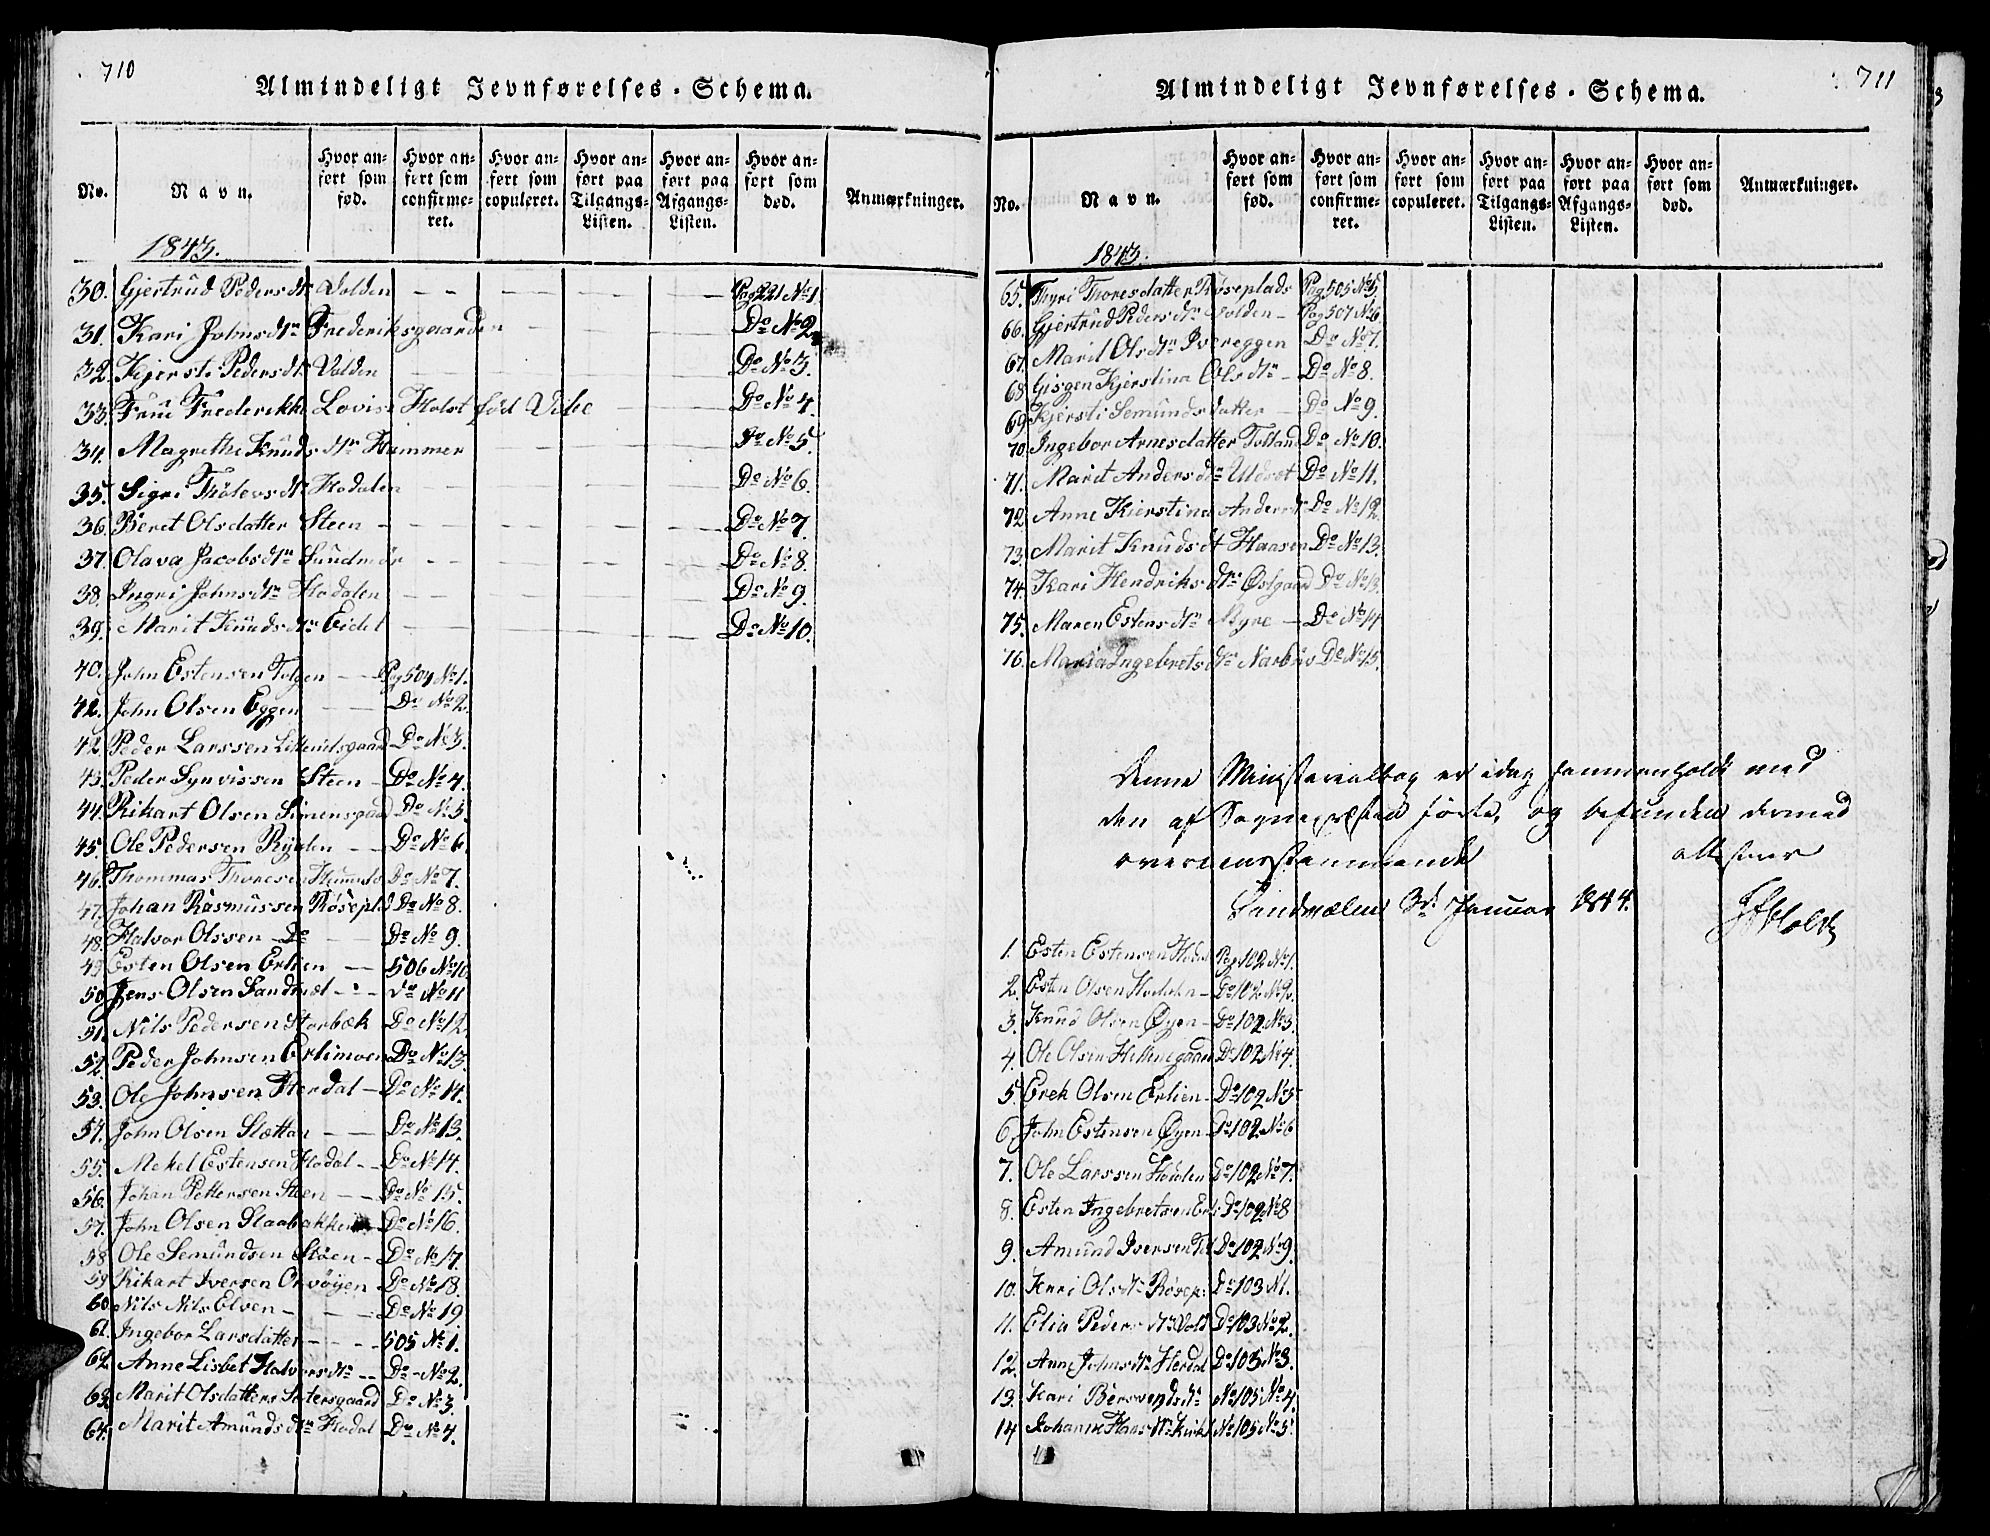 710
Almindeligt Jevnførelses-Schema.
No.
Navn.
Hvor an-
ført som
fød.
Hvor an-
ført som
confirme-
ret.
Hvor an-
ført som
copuleret.
Hvor an-
ført paa
Tilgangs-
Listen.
Hvor an-
ført paa
Afgangs-
Listen.
Hvor an-
ført som
død.
Anmærkninger.
1843.
30. Gjertrud Pedersdtr Volden Pag 221 No 1
31. Kari Johnsdtr Frederiksgaarden Do No 2
32. Kjersti Pedersdtr Volden Do No 3.
33. Frue Frederikke Lovise Holst fød Vibe Do No 4.
34. Magrethe Knudsdtr Hammer Do No 5.
35. Sigri Tholevsdtr Hodalen Do No 6.
36. Beret Olsdatter Steen Do No 7.
37. Olava Jacobsdtr Sundmør Do No 8.
38. Ingri Johnsdtr Hodalen Do No 9.
39. Marit Knudsdtr Eidet Do No 10.
40. John Estensen Tolgen Pag 504 No 1.
42. John Olsen Eggen Do No 2.
42. Peder Larssen Do No 3.
43. Peder Synvissen Steen Do No 4.
44. Rikart Olsen Simensgaard Do No 5.
45. Ole Pedersen Ryalen Do No 6.
46. Thommas Thoresen Do No 7.
47. Johan Rasmussen Røsepl. Do No 8.
48. Halvor Olssen Do Do No 9.
49. Esten Olsen Erlien 506 No 10
50. Jens Olsen Sandmæl Do No 11
51. Nils Pedersen Storbæk Do No 12.
52. Peder Johnsen Erlimoen Do No 13.
53. Ole Johnsen Herdal Do No 14.
54. John Olsen Slætten Do No 13.
55. Mekel Estensen Hodal Do No 14.
56. Johan Pettersen Steen Do No 15.
57. John Olsen Staabakken Do No 16.
58. Ole Semundsen Støen Do No 17.
59. Rikart Iversen Orvøyen Do No 18.
60. Nils Nils Elven Do No 19
61. Ingebor Larsdatter 505 No 1.
62. Anne Lisbet Halvorsdtr Do No 2.
63. Marit Olsdatter Do No 3.
64. Marit Amundsdtr Hodal Do No 4.
711
Almindeligt Jevnførelses-Schema.
No.
Navn.
Hvor an-
ført som
fød.
Hvor an-
ført som
confirme-
ret.
Hvor an-
ført som
copuleret.
Hvor an-
ført paa
Tilgangs-
Listen.
Hvor an-
ført paa
Afgangs-
Listen.
Hvor an-
ført som
død.
Anmærkninger.
1843.
65. Thyri Thoresdatter Røseplads Pag 505 No 5
66. Gjertrud Pedersdtr Volden Pag 507 No 6
67. Marit Olsdtr Ivereggen Do No 7.
68. Kjerstina Olsdtr Do No 8.
69. Kjersti Semundsdatter Do No 9.
70. Ingebor Arnesdatter Do No 10.
71. Marit Andersdtr Do No 11.
72. Anne Kierstina Do No 12.
73. Marit Knudsdt Haasen Do No 13.
74. Kari Hendriksdtr Østgaard Do No 13.
75. Maren Estensdtr Myre Do No 14
76. Maria Ingebretsdtr Narbus Do No 15.
Denne Ministerialbog er idag sammenholdt med
den af Sognepræsten førte, og befunden dermed
overeensstemmende attesterer
Sandmælen 3d Januar 1844. Holst
1. Esten Estensen Hodal Pag 102 No 1.
2. Esten Olsen Hodalen Do 102 No 2.
3. Knud Olsen Øyen Do 102 No 3.
4. Ole Olsen Do 102 No 4.
5. Erek Olsen Erlien Do 102 No 5
6. John Estensen Øyen Do 102 No 6
7. Ole Larssen Hodalen Do 102 No 7.
8. Esten Ingebretsen Erl. Do 102 No 8
9. Amund Iversen Do 102 No 9.
10. Kari Olsdtr Røsep: Do 103 N 1.
11. Elia Pedersdtr Vold Do 103 No 2.
12. Anne Johnsdtr Herdal Do 103 No 3.
13. Kari Bersvendsdtr No 105 No 4.
14. Johanne Hansdtr No 105 No 5.